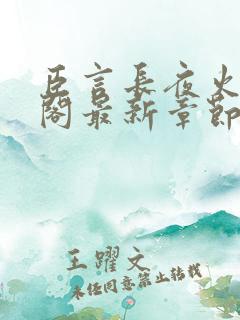 臣言长夜火
阁最新章节
王躍文
未经同意禁止转载